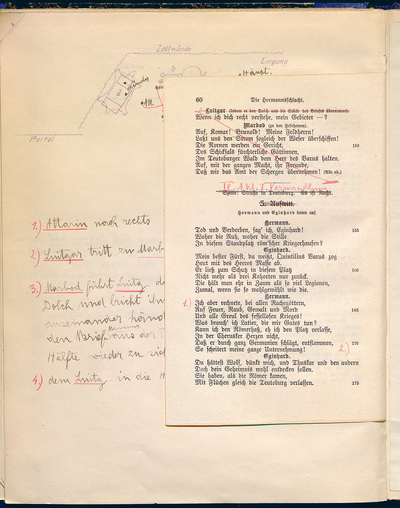 Zeltwände
Eingang
Haupt.
Portal
1.) Attarin nach rechts
2.) Luitgar tritt zu Marb
3.) Marbod führt Luitg. d
Dolch und bricht ihn
auseinander
den Brief aus der
Hälfte wieder zu
4.) dem Luitg. in die H
60 Die Hermannsschlacht.
Luitgar
Wenn ich dich recht verstehe, mein Gebieter – ?
Marbod (zu den Feldherren).
Auf, Komar! Brunold! Meine Feldherrn!
Laßt uns den Strom sogleich der Weser überschiffen!
Die Nornen werden ein Gericht,
Des Schicksals fürchterliche Göttinnen,
Im Teutoburger Wald dem Heer des Varus halten.
Auf, mit der ganzen Macht, ihr Freunde,
Daß wir das Amt der Schergen übernehmen! (Alle ab.)
Szene: Straße in Teutoburg. Es ist Nacht.
3. Auftritt.
Hermann und Eginhard treten auf.
Hermann.
Tod und Verderben, sag' ich, Eginhard!
Woher die Ruh, woher die Stille
In diesem Standplatz röm'scher Kriegerhaufen?
Eginhard.
Mein bester Fürst, du weißt, Quintilius Varus zog
Heut mit des Heeres Masse ab.
Er ließ zum Schutz in diesem Platz
Nicht mehr als drei Kohorten nur zurück.
Die hält man ehr in Zaum als so viel Legionen,
Zumal, wenn sie so wohlgewählt wie die.
Hermann.
1.) Ich aber rechnete, bei allen Rachegöttern,
Auf Feuer, Raub, Gewalt und Mord
Und alle Greul des fessellosen Krieges!
Was brauch' ich Latier, die mir Gutes tun?
Kann ich den Römerhaß, eh ich den Platz verlasse,
In der Cherusker Herzen nicht,
Daß er durch ganz Germanien schlägt, entflammen,
So scheitert meine ganze Unternehmung! 2.)
Eginhard.
Du hättest Wolf, dünkt mich, und Thuskar und den andern
Doch dein Geheimnis wohl entdecken sollen.
Sie haben, als die Römer kamen,
Mit Flüchen gleich die Teutoburg verlassen.